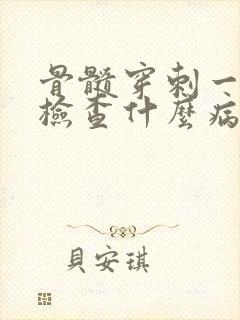 骨髓穿刺一
檢查什麼病
貝安琪